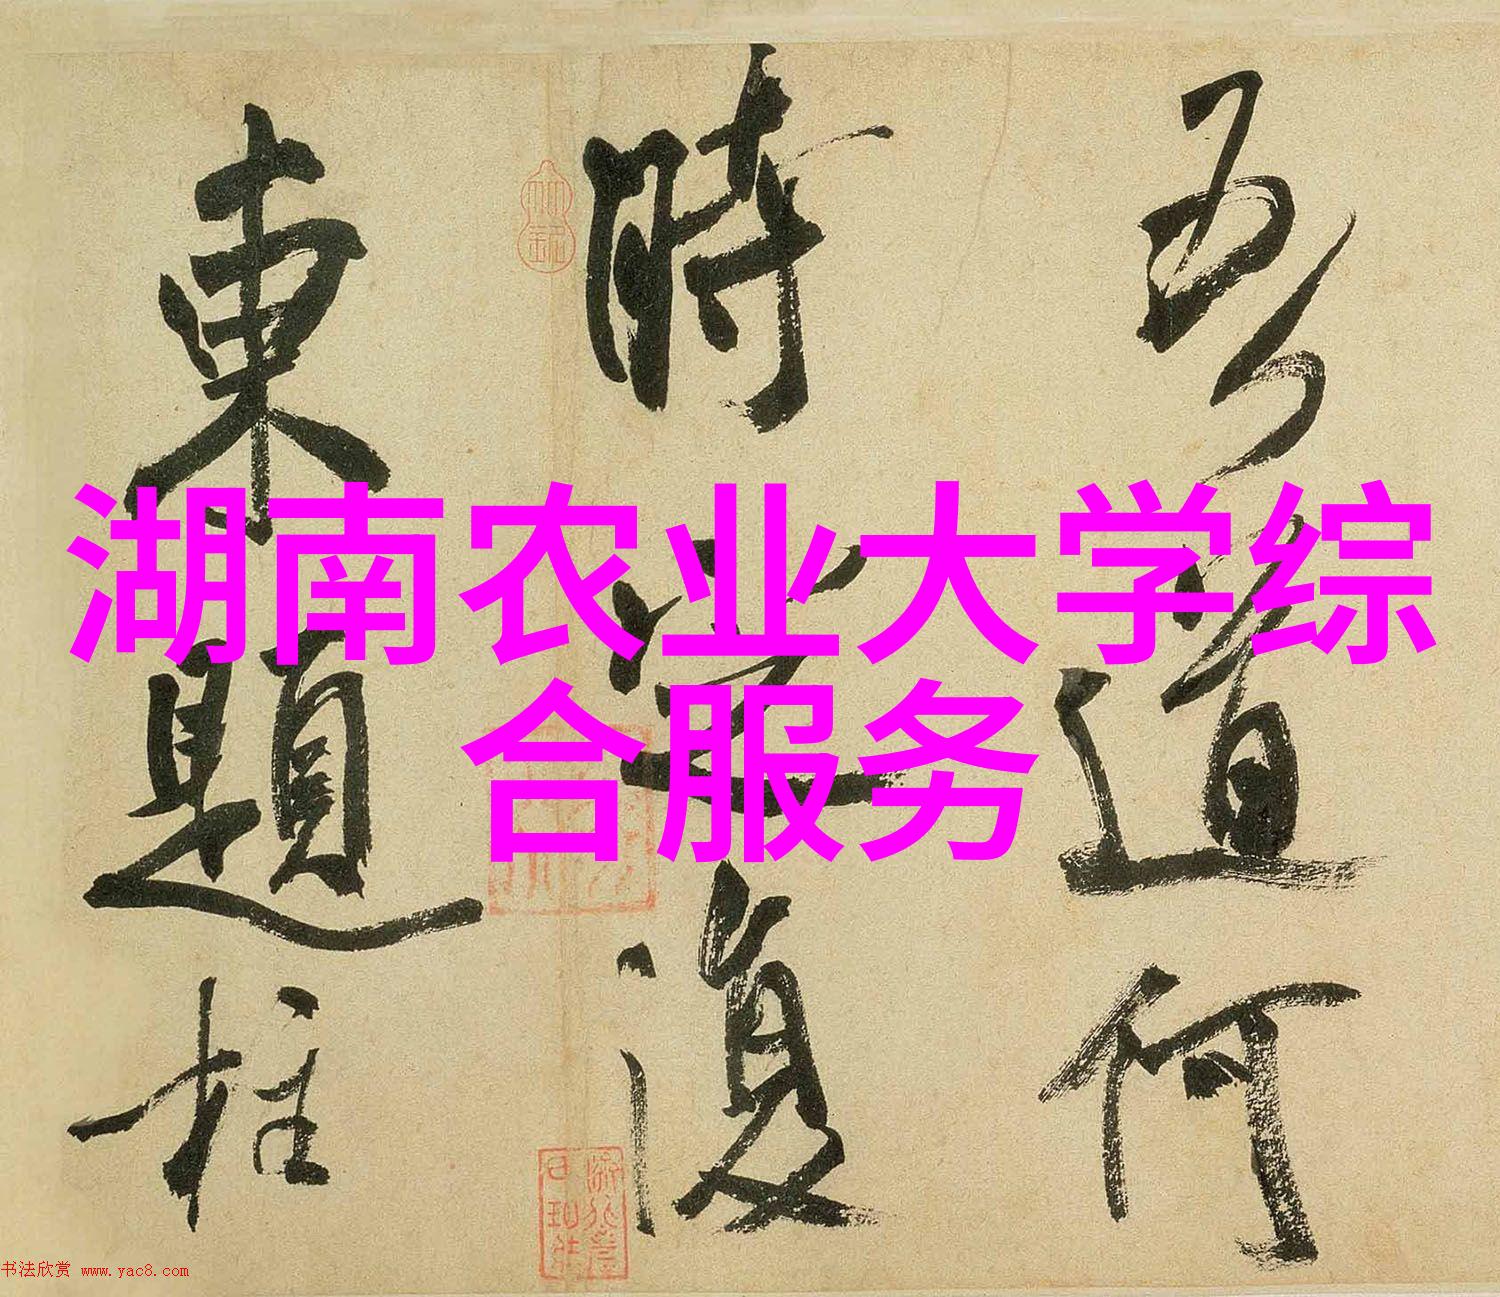 湖南农业大学综
合服务
吾道何
時定復
東題柱
书法欣赏 www.yac8.com